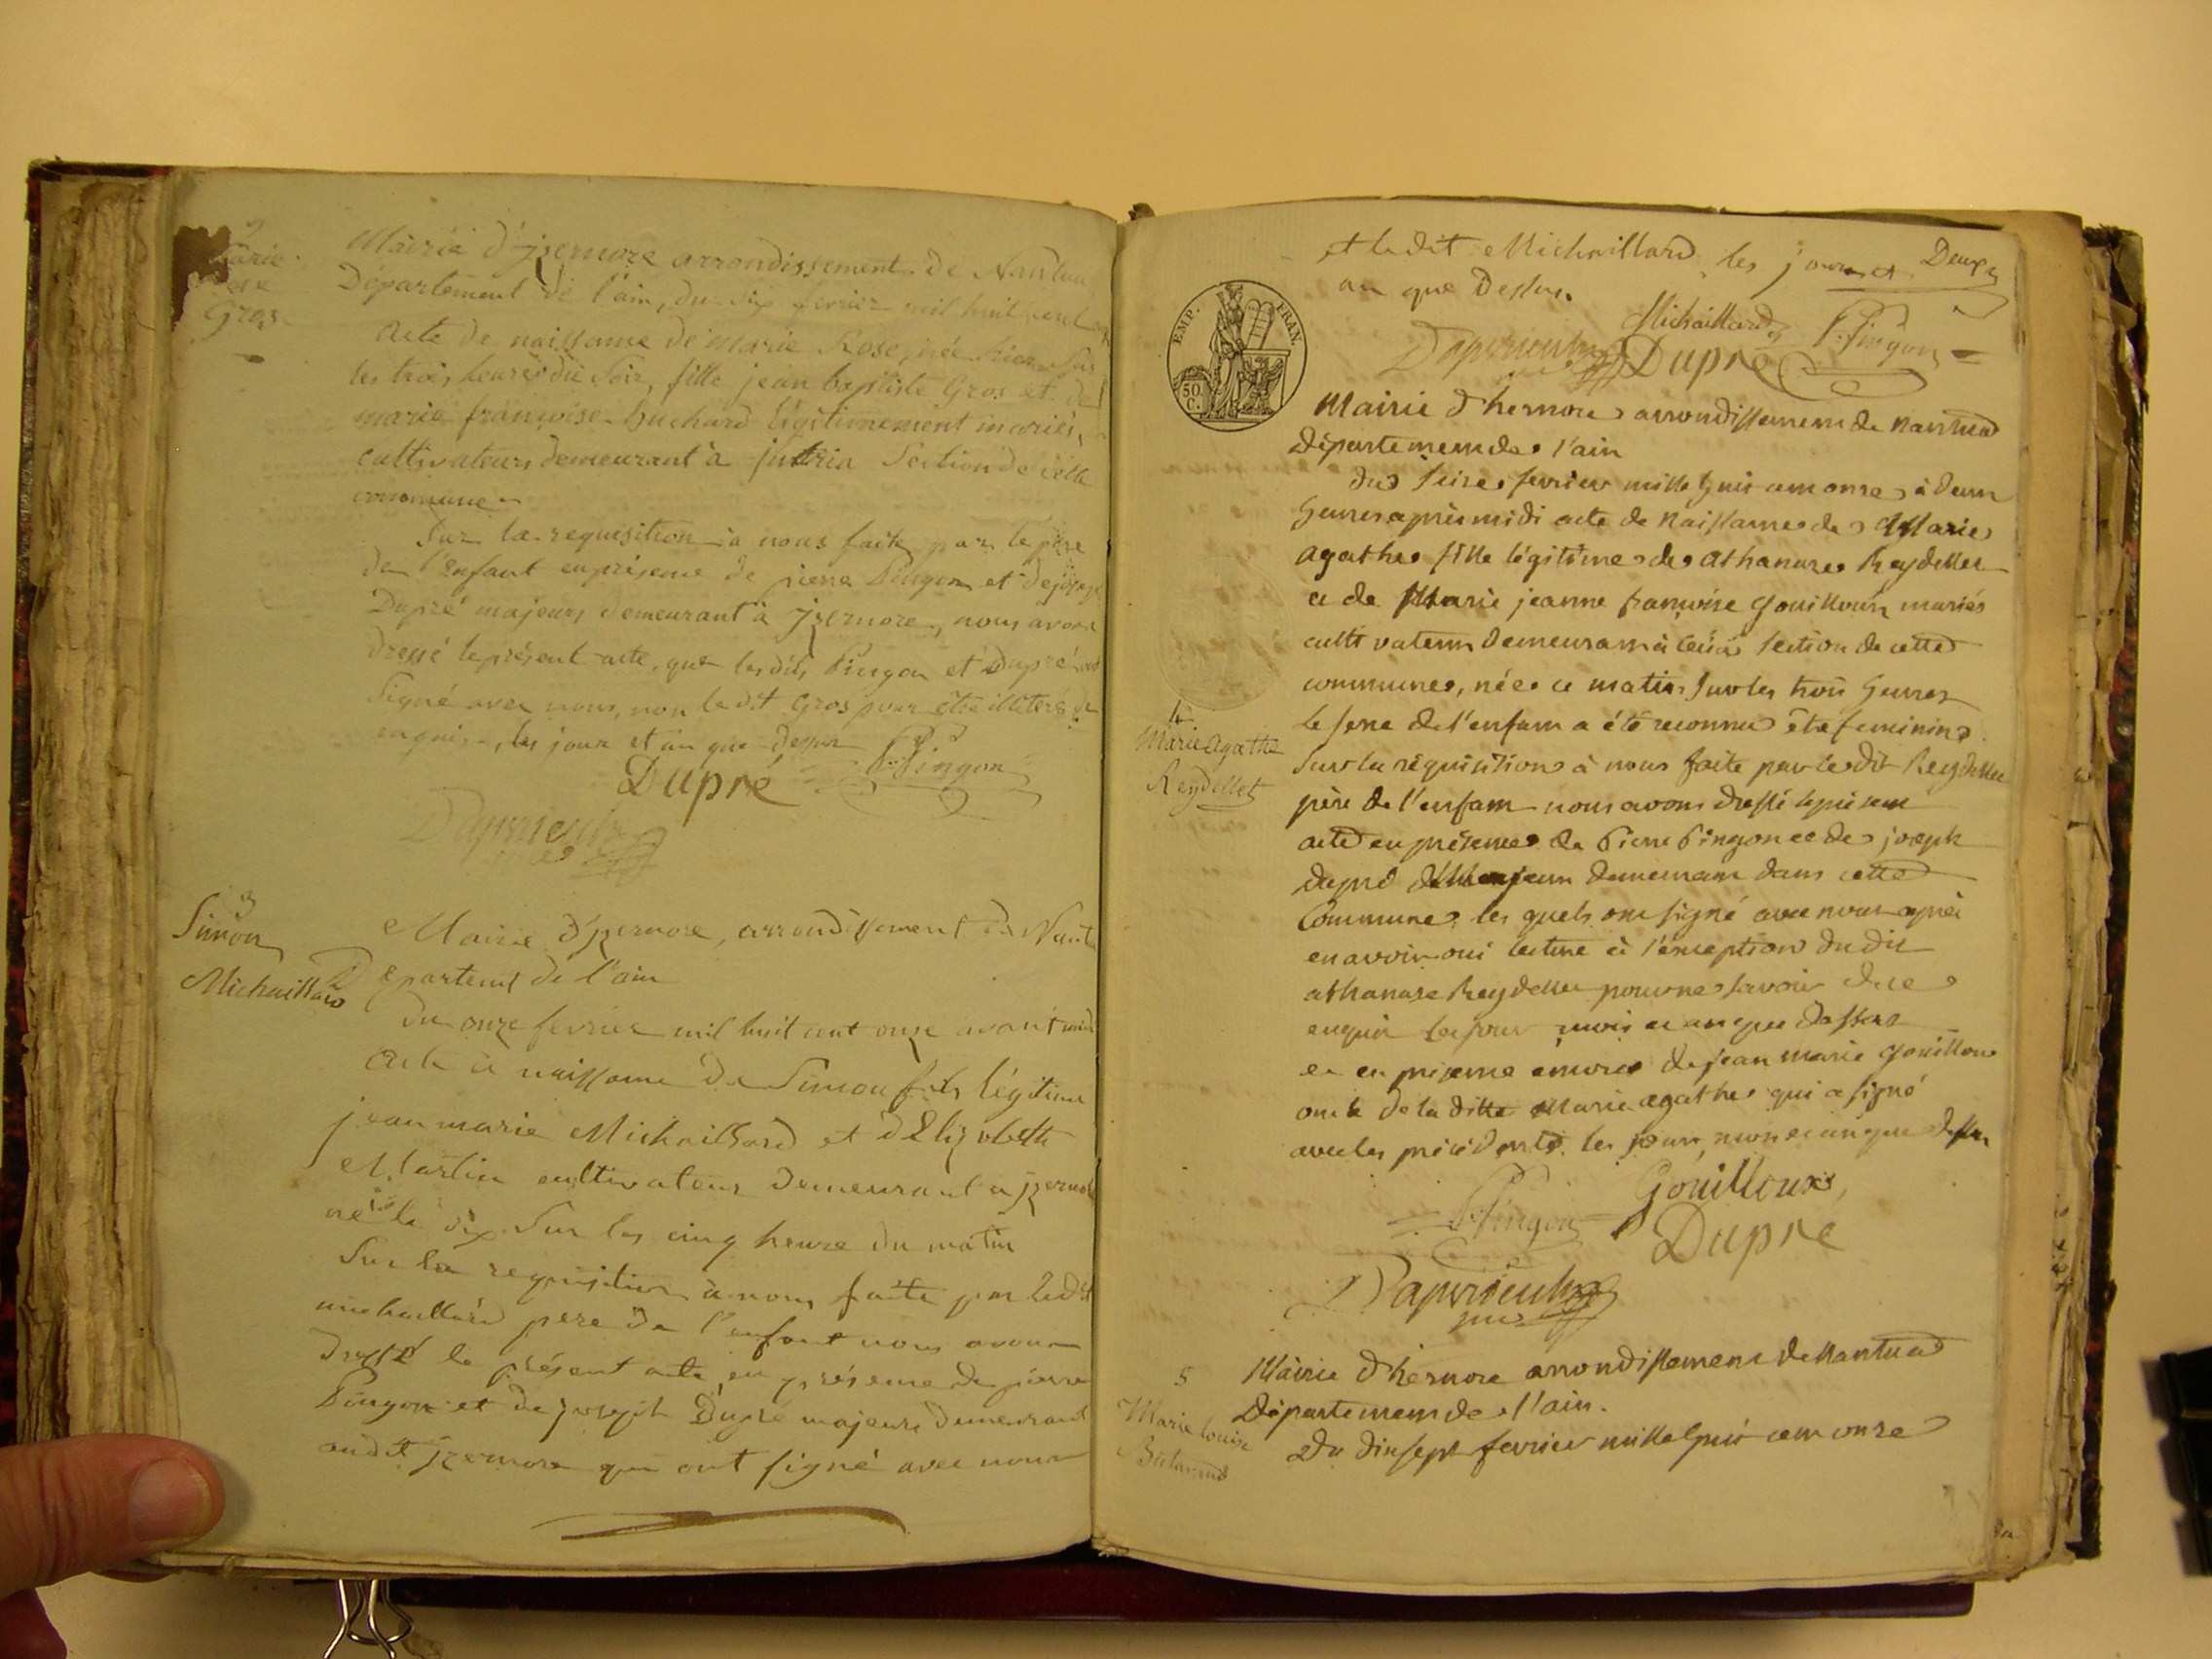 2
Marie
Rose
Gros
Mairie d'jzernore arrondissement de Nantua
Département de l'ain, du six fevrier mil huit cent
acte de naissance de marie Rose, née hier sur
les trois heures du soir, fille jean baptiste Gros et de
marie françoise huchard légitimement mariés,
cultivateurs demeurant à section de cette
commune
Sur la requisition à nous faite par le père
de l'Enfant en présence de pierre Pingon et de joseph
Dupré majeurs demeurant à jzernore, nous avons
dressé le présent acte, que les dits Pingon et Dupré ont
signé avec nous, non le dit Gros pour être illiteré de
enquis, les jour et an que dessus
P. Pingon
Dupré
3
Simon
Michaillard
Mairie d'jzernore, arrondissement de Nantua
Département de l'ain
Du onze fevrier mil huit cent onze avant midi
Acte de naissance de Simon fils légitime
jean marie Michaillard et d'Elizabeth
Martin cultivateurs demeurant a jzernore
né le dix sur les cinq heure du matin
Sur la requisition à nous faite par ledit
michaillard pere de l'enfant nous avons
dressé le présent acte en présence de pierre
Pingon et de joseph Dupré majeurs demeurant
audit jzernore qui ont signé avec nous
et le dit Michaillard les jour et
Deux
an que Dessus
Michaillard P. Pingon
Dupré
EMP. FRAN.
50 C.
Mairie d'hernore arrondissement de nantua
département de l'ain
du seize fevrier mille huit cent onze à deux
heures après midi acte de naissance de Marie
agathe fille légitime de athanase Reydellet
et de Marie jeanne françoise Gouilloux mariés
cultivateurs demeurant à section de cette
commune, née ce matin sur les trois heures
le sexe de l'enfant a été reconnu être feminin
4
Marie Agathe
Reydellet
Sur la réquisition à nous faite par le dit Reydellet
père de l'enfant nous avons dressé le présent
acte en présence de Pierre Pingon et de joseph
dupré majeurs demeurant dans cette
Commune, les quels ont signé avec nous après
en avoir oui lecture à l'exception du dit
athanase Reydellet pour ne savoir de ce
enquis les jour mois et an que dessus
et en présence encore de jean marie Gouilloux
oncle de la ditte Marie agathe qui a signé
avec les précédents les jour, mois et an que dessus
P. Pingon
Gouilloux
Dupré
5
Marie louise
Mairie d'hernore arrondissement de Nantua
Département de l'ain.
Du dix sept fevrier mille huit cent onze